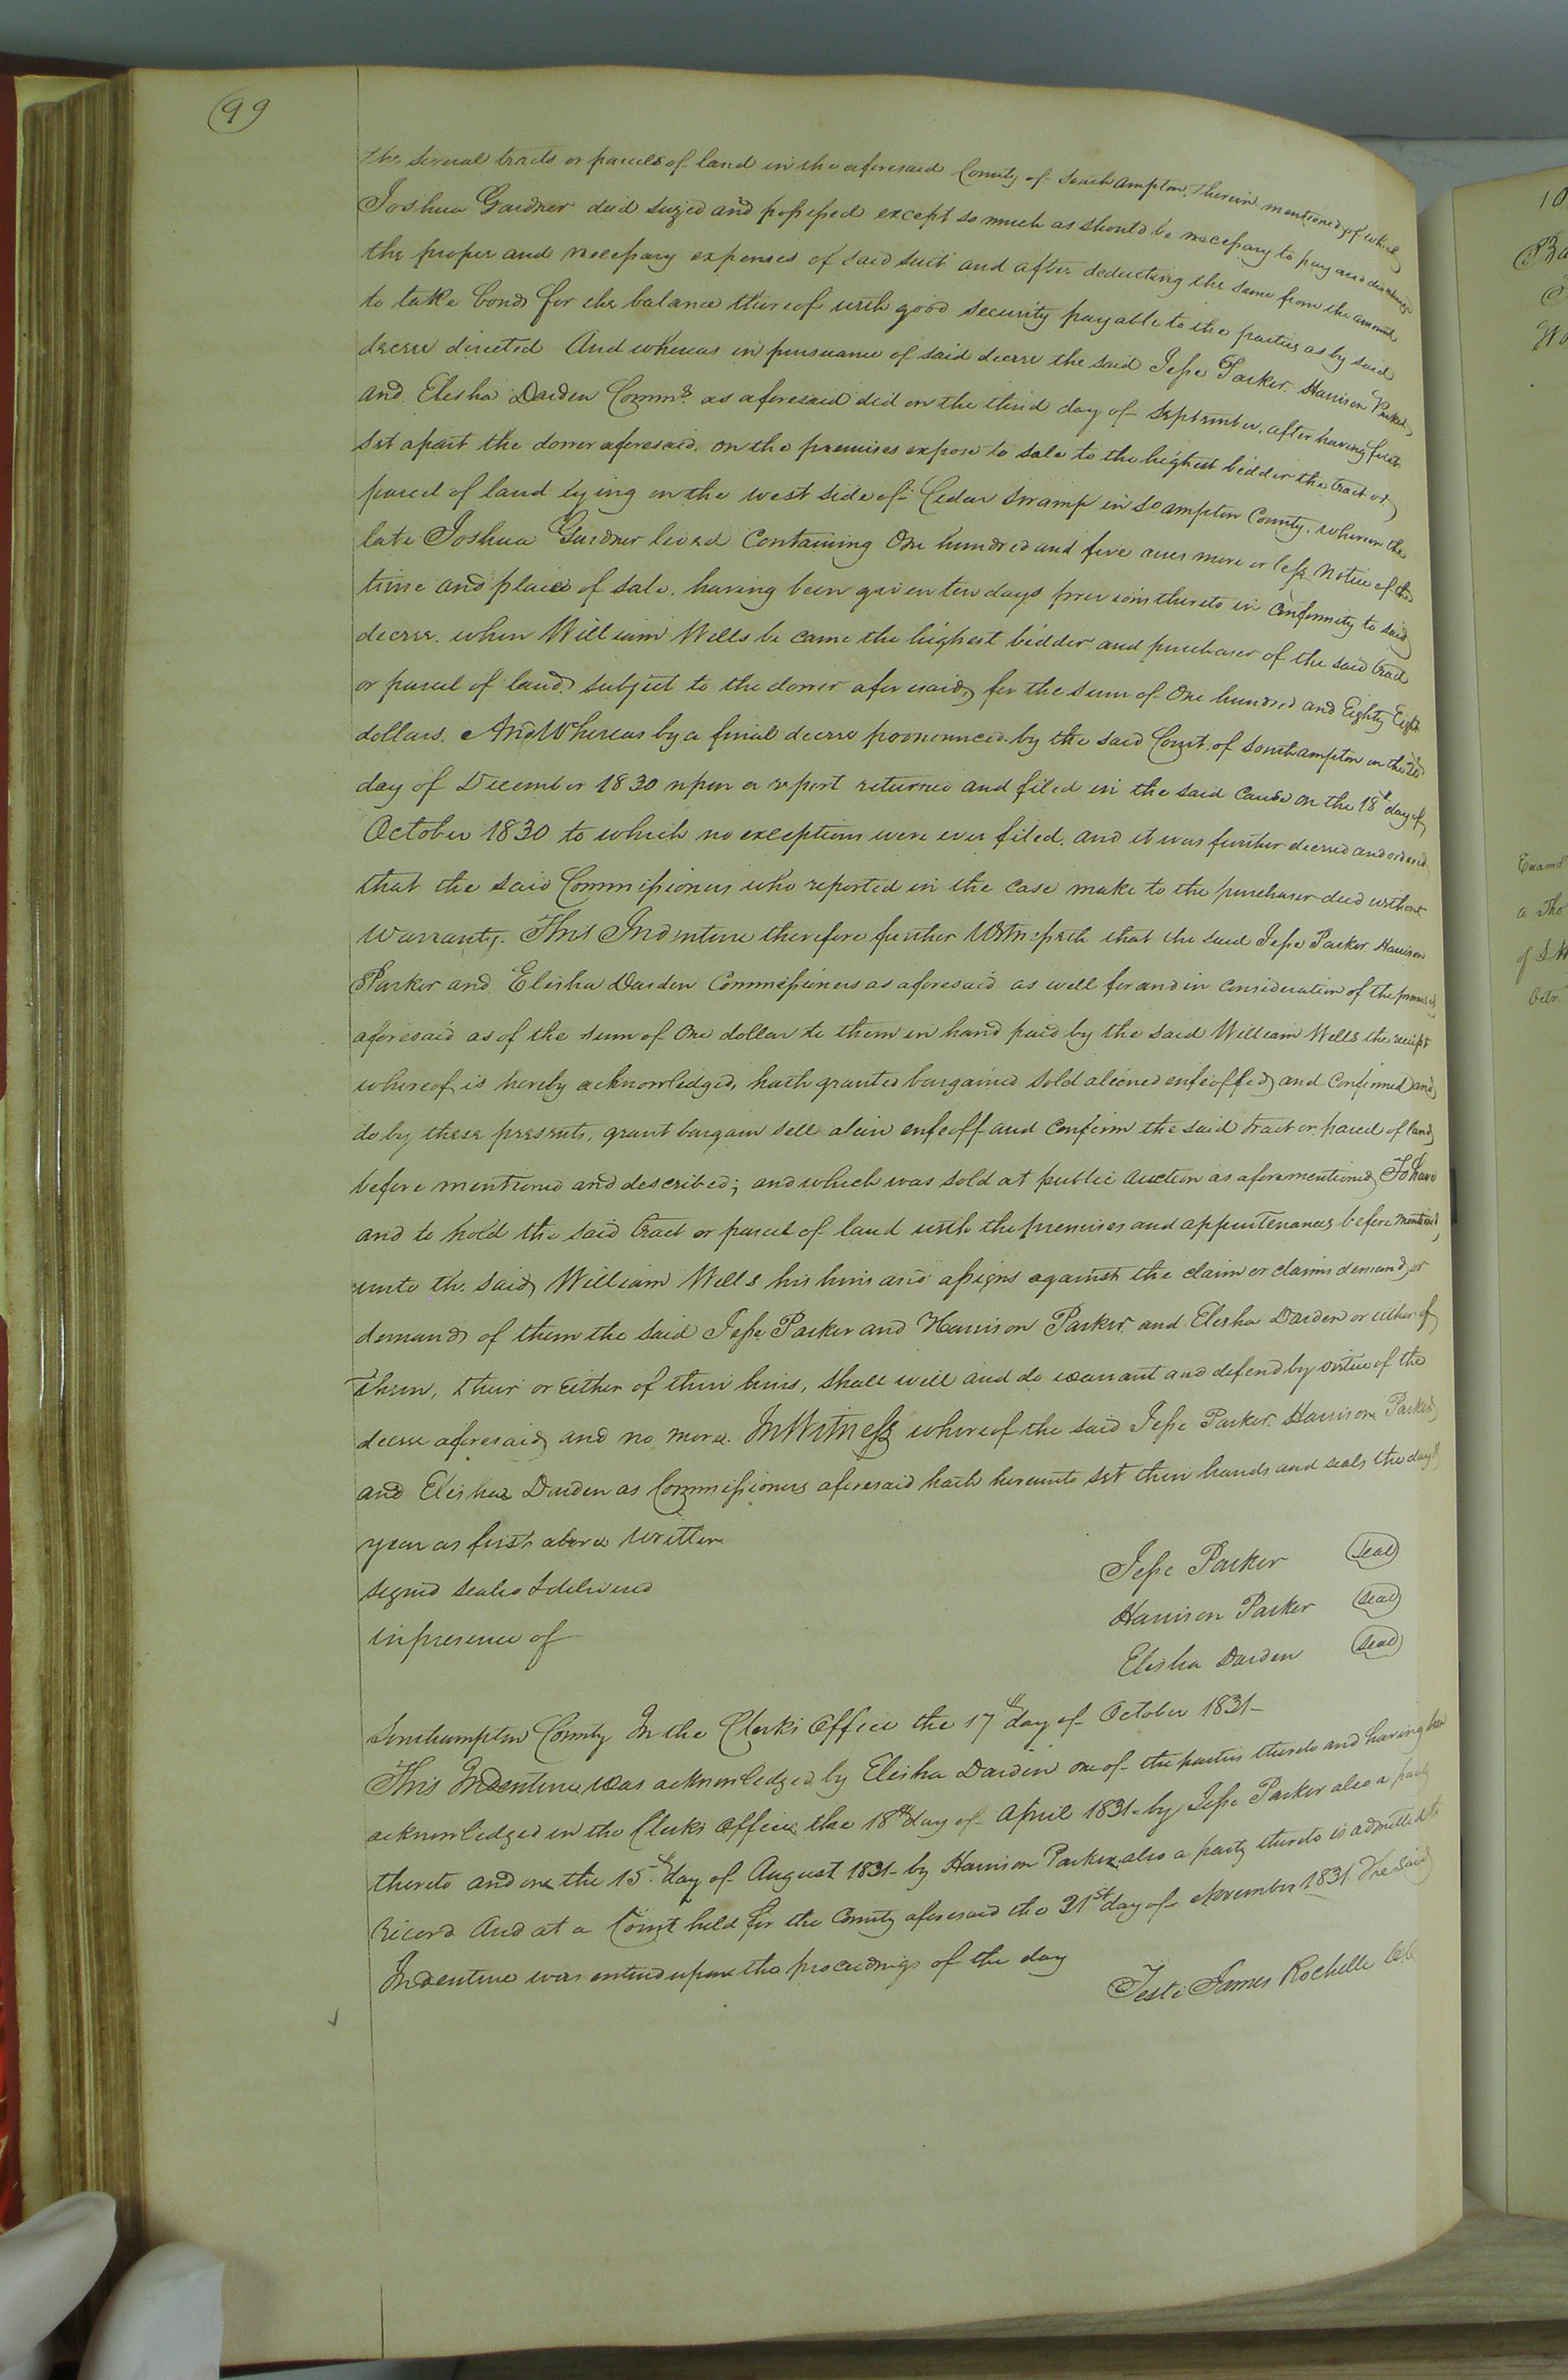 99
the several tracts or parcels of land in the aforesaid County of Southampton, therein mentioned, of which
Joshua Gardner died seized and possessed except so much as should be necessary to pay and discharge
the proper and necessary expenses of said suit and after deducting the same from the amount
to take bonds for the balance thereof with good security payable to the parties as by said
decree directed And whereas in pursuance of said decree the said Jesse Parker Harrison Parker
and Elisha Darden Commrs. as aforesaid did on the third day of September, after having first
set apart the dower aforesaid, on the premises expose to sale to the highest bidder the tract or
parcel of land lying on the west side of Cedar Swamp in So ampton County, whereon the
late Joshua Gardner lived Containing One hundred and five acres more or less. Notice of the
time and place of sale, having been given ten days previous thereto in Conformity to said
decree. when William Wells be came the highest bidder and purchaser of the said tract
or parcel of land subject to the dower aforesaid for the sum of One hundred and Eighty Eight
dollars. And Whereas by a final decree pronounced by the said Court of Southampton on the
day of December 1830 upon a report returned and filed in the said Cause on the 18th day of
October 1830 to which no exceptions were ever filed, and it was further decreed and ordered
that the said Commissioners who reported in the case make to the purchaser deed without
Warranty. This Indenture therefore further Witnesseth that the said Jesse Parker Harrison
Parker and Elisha Darden Commissioners as aforesaid as well for and in Consideration of the premises
aforesaid as of the sum of One dollar to them in hand paid by the said William Wells the receipt
whereof is hereby acknowledged, hath granted bargained sold aliened enfeoffed and Confirmed and
do by these presents, grant bargain sell alien enfeoff and Confirm the said tract or parcel of land
before mentioned and described; and which was sold at public auction as aforementioned To have
and to hold the said tract or parcel of land with the premises and appurtenances before mentioned
unto the said William Wells his heirs and assigns against the claim or claims demand or
demands of them the said Jesse Parker and Harrison Parker and Elisha Darden or either of
them, their or Either of their heirs, shall will and do warrant and defend by virtue of the
decree aforesaid and no more. In Witness whereof the said Jesse Parker Harrison Parker
and Elisha Darden as Commissioners aforesaid hath hereunto set their hands and seals the day &
year as first above written
signed sealed & delivered
in presence of
Jesse Parker seal
Harrison Parker seal
Elisha Darden seal
Southampton County In the Clerks Office the 17th day of October 1831-
This Indenture was acknowledged by Elisha Darden one of the parties thereto and having been
acknowledged in the Clerks Office the 18th day of April 1831- by Jesse Parker also a party
thereto and on the 15th day of August 1831- by Harrison Parker also a party thereto is admitted to
Record And at a Court held for the County aforesaid the 21st day of November 1831. The said
Indenture was entered upon the proceedings of the day
Teste James Rochelle
10